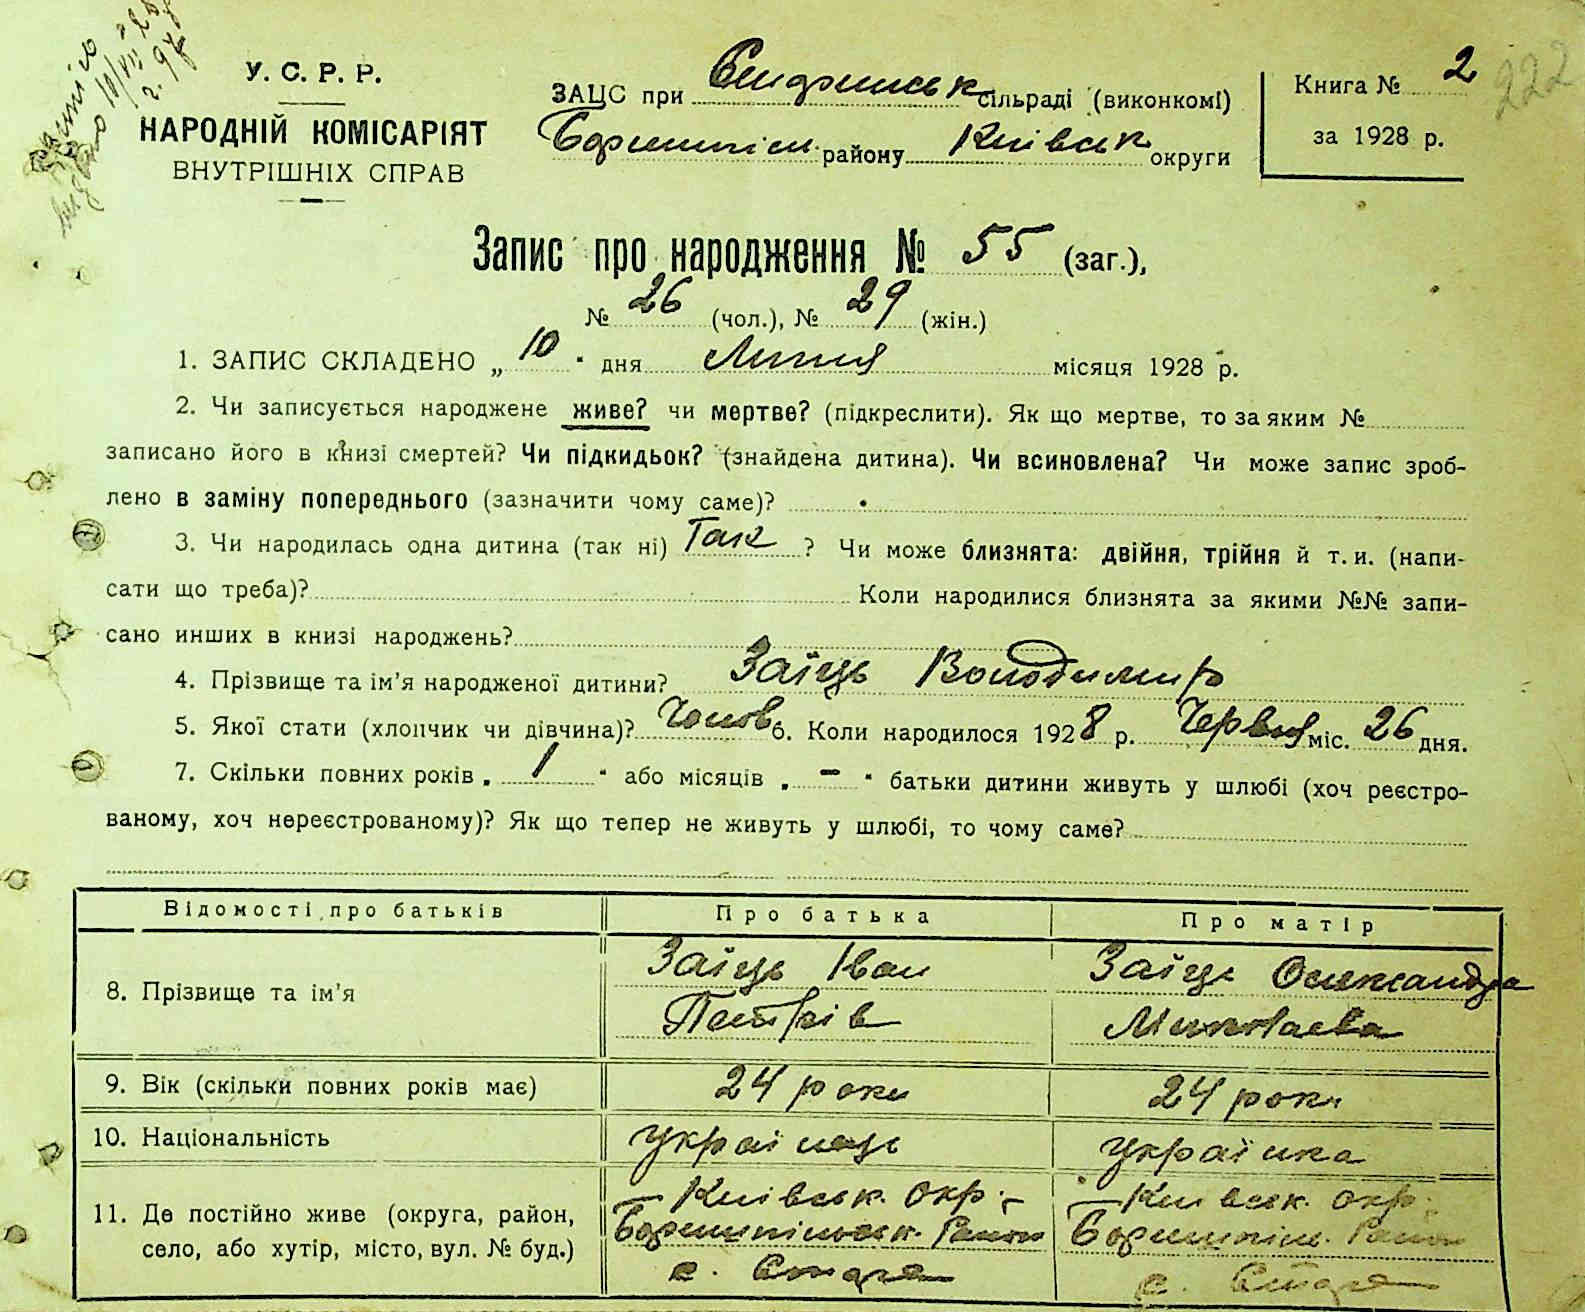 У. С. Р. Р.
НАРОДНІЙ КОМІСАРІЯТ
ВНУТРІШНІХ СПРАВ
ЗАЦС при сільраді (виконкомі)
Бориспіль. району Київськ округи
Книга № 2
222
за 1928 р.
Запис про народження № 55 (заг.),
№ 26 (чол.), № 29 (жін.)
1. ЗАПИС СКЛАДЕНО „ 10 " дня Липня місяця 1928 р.
2. Чи записується народжене живе? чи мертве? (підкреслити). Як що мертве, то за яким №
записано його в книзі смертей? Чи підкидьок? (знайдена дитина). Чи всиновлена? Чи може запис зроб-
лено в заміну попереднього (зазначити чому саме)?
3. Чи народилась одна дитина (так ні) Так ? Чи може близнята: двійня, трійня й т. и. (напи-
сати що треба)? Коли народилися близнята за якими №№ запи-
сано инших в книзі народжень?
4. Прізвище та ім'я народженої дитини? Заїць Володимир
5. Якої стати (хлопчик чи дівчина)? Чолов 6. Коли народилося 1928 р. Червня міс. 26 дня.
7. Скільки повних років „ 1 " або місяців „ - " батьки дитини живуть у шлюбі (хоч реєстро-
ваному, хоч нереєстрованому)? Як що тепер не живуть у шлюбі, то чому саме?
Відомості про батьків Про батька Про матір
8. Прізвище та ім'я Заїць Іван Заїць Олександра
Петрів Миколаєва
9. Вік (скільки повних років має) 24 роки 24 роки
10. Національність українець українка
11. Де постійно живе (округа, район, Київськ. окр. Київськ. окр.
село, або хутір, місто, вул. № буд.) Бориспільськ. Район Бориспіль. Район
с. Стара с. Стара